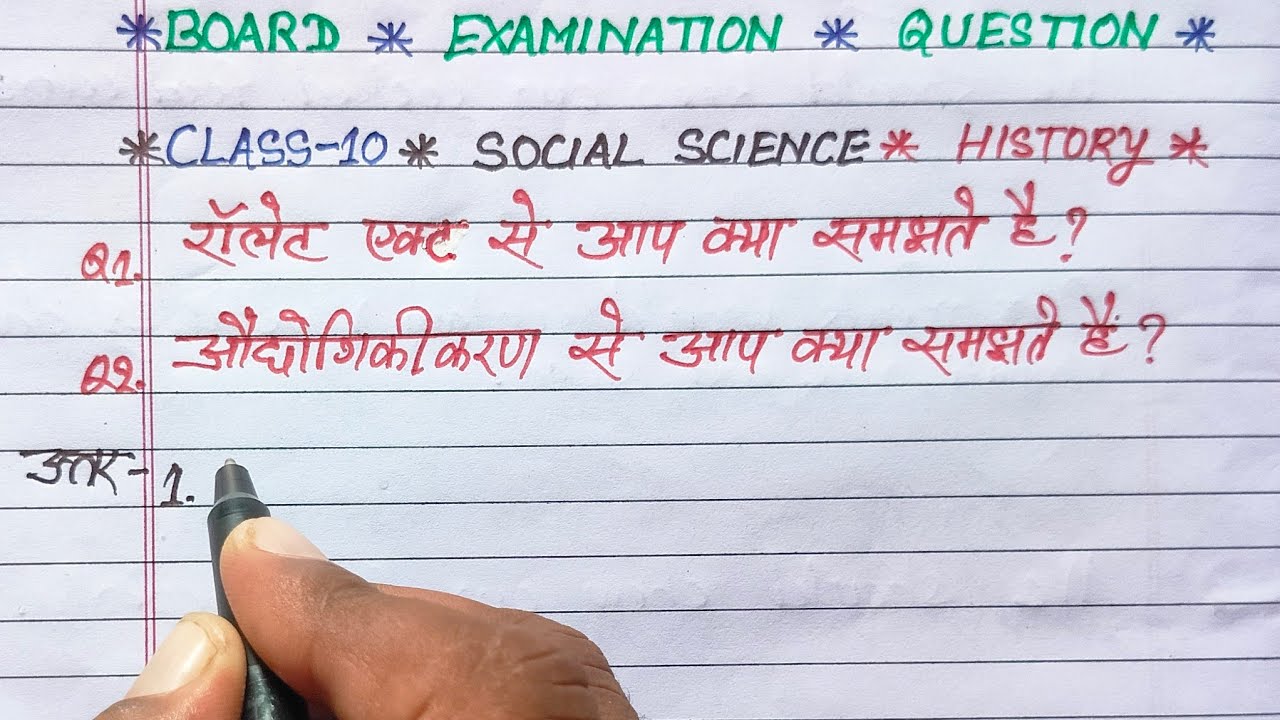 *BOARD * EXAMINATION * QUESTION *
*CLASS-10 * SOCIAL SCIENCE * HISTORY *
Q1. रॉलेट एक्ट से आप क्या समझते है?
Q2. औद्योगिकीकरण से आप क्या समझते हैं?
उत्तर- 1.